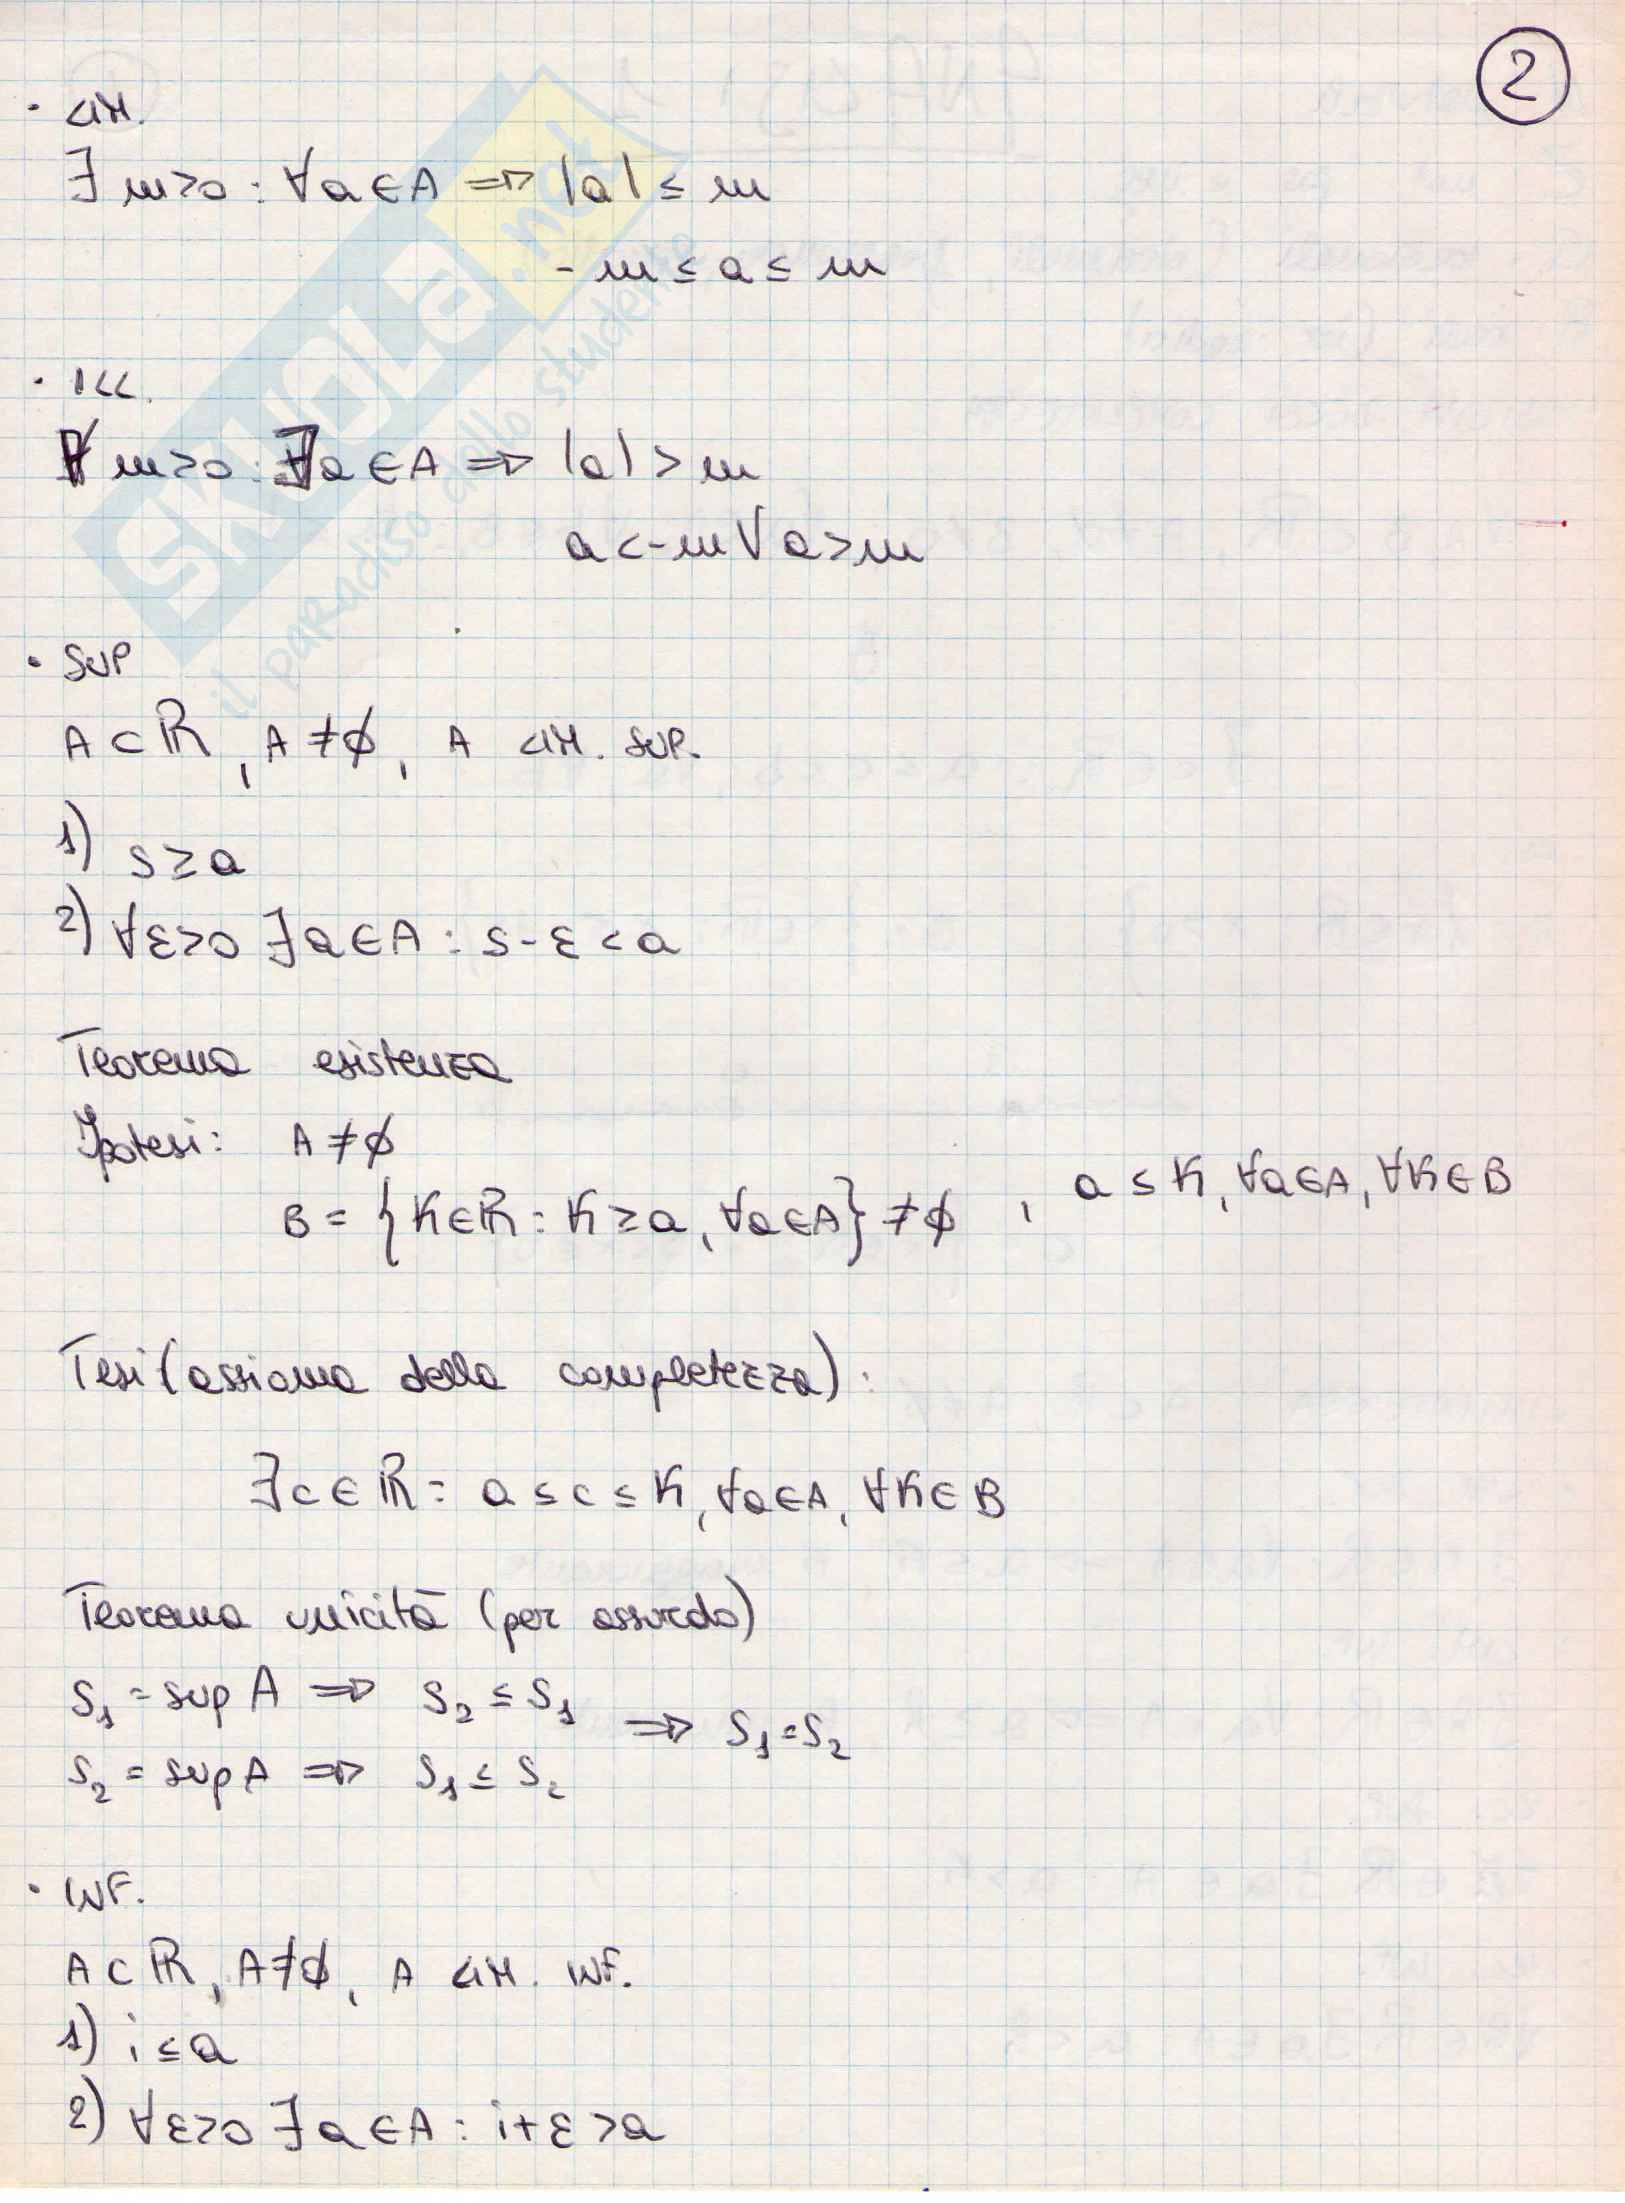 2
· LIM.
∃ m>0 : ∀a∈A ⇒ |a| ≤ m
-m ≤ a ≤ m
· ILL.
∀ m>0 : ∃a∈A ⇒ |a| > m
a<-m ∨ a>m
· SUP
A⊂ℝ, A≠∅, A LIM. SUP.
1) s≥a
2) ∀ε>0 ∃a∈A : s-ε<a
Teorema esistenza
Ipotesi: A≠∅
B = {K∈ℝ : K≥a, ∀a∈A} ≠∅ , a≤K, ∀a∈A, ∀K∈B
Tesi (assioma della completezza):
∃c∈ℝ : a≤c≤K, ∀a∈A, ∀K∈B
Teorema unicità (per assurdo)
S₁ = sup A ⇒ S₂ ≤ S₁
⇒ S₁=S₂
S₂ = sup A ⇒ S₁ ≤ S₂
· INF.
A⊂ℝ, A≠∅, A LIM. INF.
1) i≤a
2) ∀ε>0 ∃a∈A : i+ε>a
SKUOLA.net
il paradiso dello studente